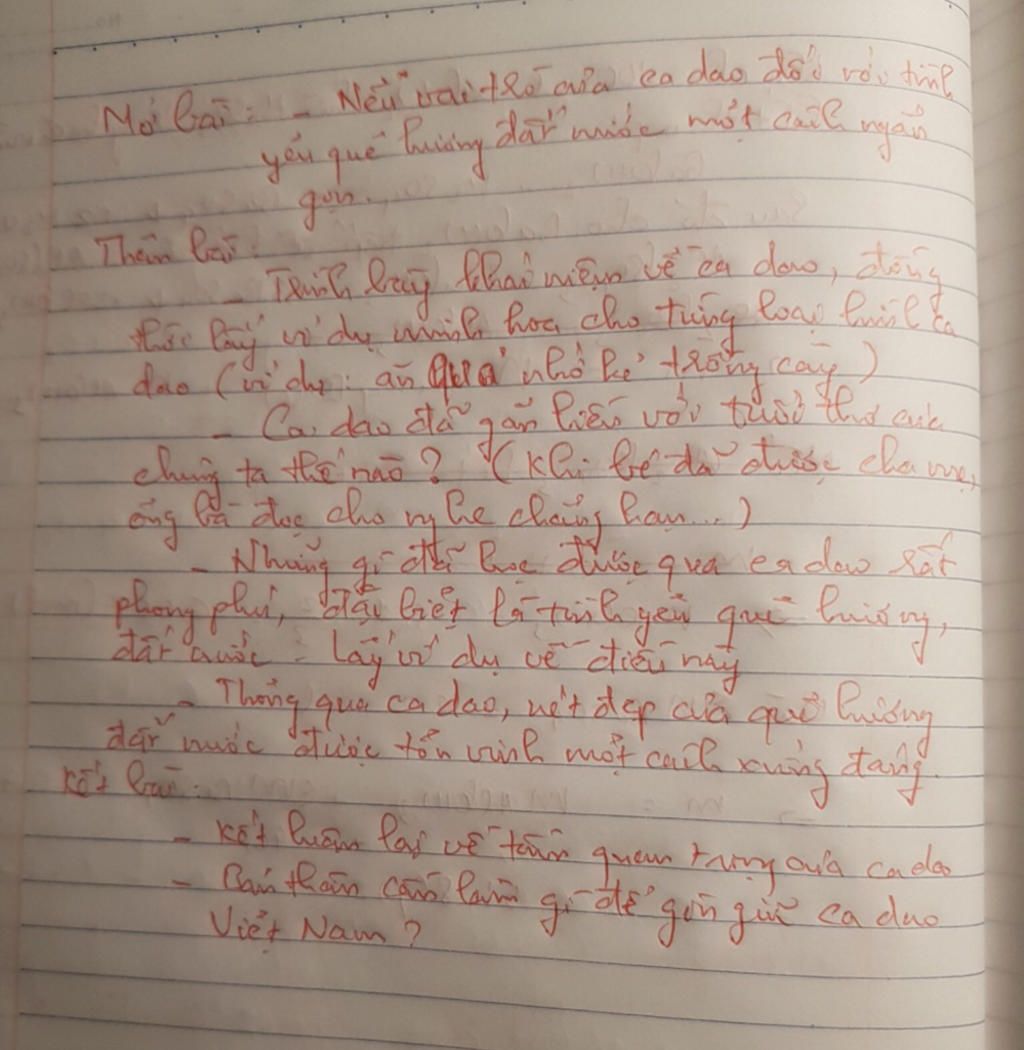 Mở bài: - Nêu vai trò của ca dao đối với tình
yêu quê hương đất nước một cách ngắn
gọn.
Thân bài:
- Trình bày khái niệm về ca dao, đồng
thời lấy ví dụ minh họa cho từng loại hình ca
dao (ví dụ: ăn quả nhớ kẻ trồng cây)
- Ca dao đã gắn liền với tuổi thơ của
chúng ta thế nào? (Khi bé đã được cha mẹ,
ông bà đọc cho nghe chẳng hạn...)
- Những gì đã học được qua ca dao rất
phong phú, đặc biệt là tình yêu quê hương,
đất nước: Lấy ví dụ về điều này
- Thông qua ca dao, nét đẹp của quê hương
đất nước được tôn vinh một cách xứng đáng.
Kết bài:
- Kết luận lại về tầm quan trọng của ca dao
- Bản thân cần làm gì để gìn giữ ca dao
Việt Nam?